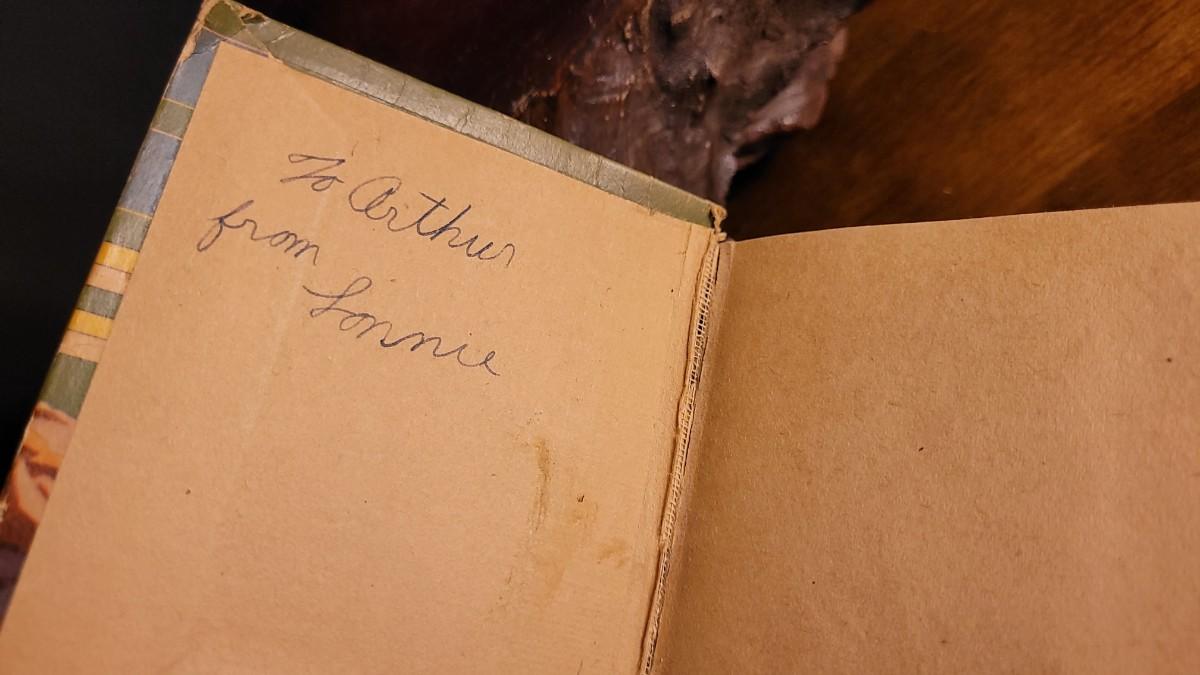 To Arthur
from
Lonnie